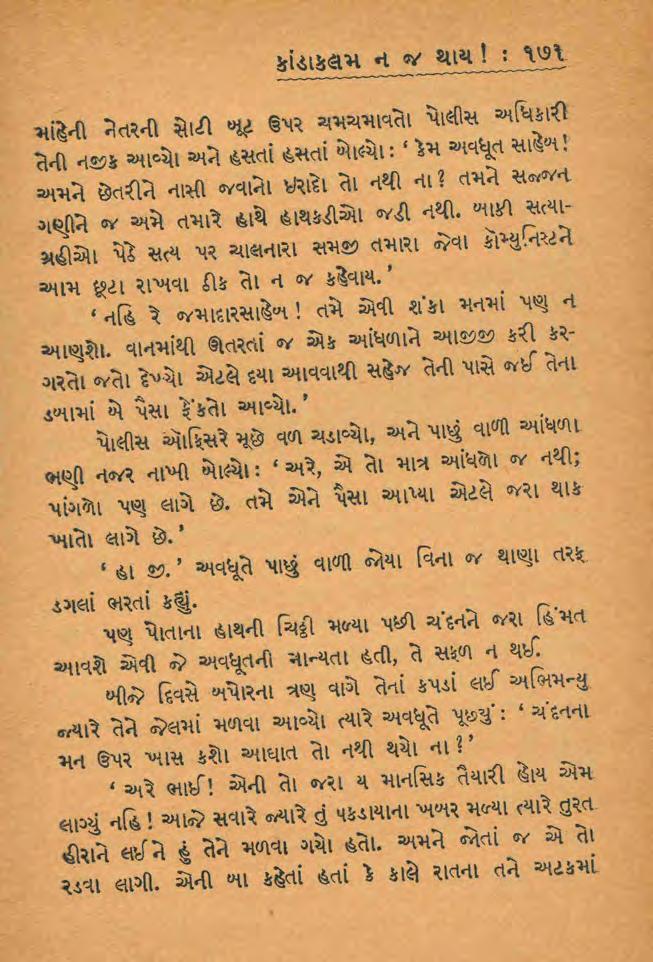 કાંડાકલમ ન જ થાય ! : ૧૭૧
માંહેની નેતરની સોટી બૂટ ઉપર ચમચમાવતો પોલીસ અધિકારી
તેની નજીક આવ્યો અને હસતાં હસતાં બોલ્યો : ‘ કેમ અવધૂત સાહેબ !
અમને છેતરીને નાસી જવાનો ઇરાદો તો નથી ના ? તમને સજ્જન
ગણીને જ અમે તમારે હાથે હાથકડીઓ જડી નથી. બાકી સત્યા-
ગ્રહીઓ પેઠે સત્ય પર ચાલનારા સમજી તમારા જેવા કૉમ્યુનિસ્ટને
આમ છૂટા રાખવા ઠીક તો ન જ કહેવાય. ’
‘ નહિ રે જમાદારસાહેબ ! તમે એવી શંકા મનમાં પણ ન
આણશો. વાનમાંથી ઊતરતાં જ એક આંધળાને આજીજી કરી કર-
ગરતો જતો દેખ્યો એટલે દયા આવવાથી સહેજ તેની પાસે જઈ તેના
ડબામાં બે પૈસા ફેંકતો આવ્યો. ’
પોલીસ ઑફિસરે મૂછે વળ ચડાવ્યો, અને પાછું વાળી આંધળા
ભણી નજર નાખી બોલ્યો : ‘ અરે, એ તો માત્ર આંધળો જ નથી;
પાંગળો પણ લાગે છે. તમે એને પૈસા આપ્યા એટલે જરા થાક
ખાતો લાગે છે. ’
‘ હા જી. ’ અવધૂતે પાછું વાળી જોયા વિના જ થાણા તરફ
ડગલાં ભરતાં કહ્યું.
પણ પોતાના હાથની ચિઠ્ઠી મળ્યા પછી ચંદનને જરા હિંમત
આવશે એવી જે અવધૂતની માન્યતા હતી, તે સફળ ન થઈ.
બીજે દિવસે બપોરના ત્રણ વાગે તેનાં કપડાં લઈ અભિમન્યુ
જ્યારે તેને જેલમાં મળવા આવ્યો ત્યારે અવધૂતે પૂછ્યું : ‘ ચંદનના
મન ઉપર ખાસ કશો આઘાત તો નથી થયો ના ? ’
‘ અરે ભાઈ ! એની તો જરા ય માનસિક તૈયારી હોય એમ
લાગ્યું નહિ ! આજે સવારે જ્યારે તું પકડાયાના ખબર મળ્યા ત્યારે તુરત
હીરાને લઈને હું તેને મળવા ગયો હતો. અમને જોતાં જ એ તો
રડવા લાગી. એની બા કહેતાં હતાં કે કાલે રાતના તને અટકમાં